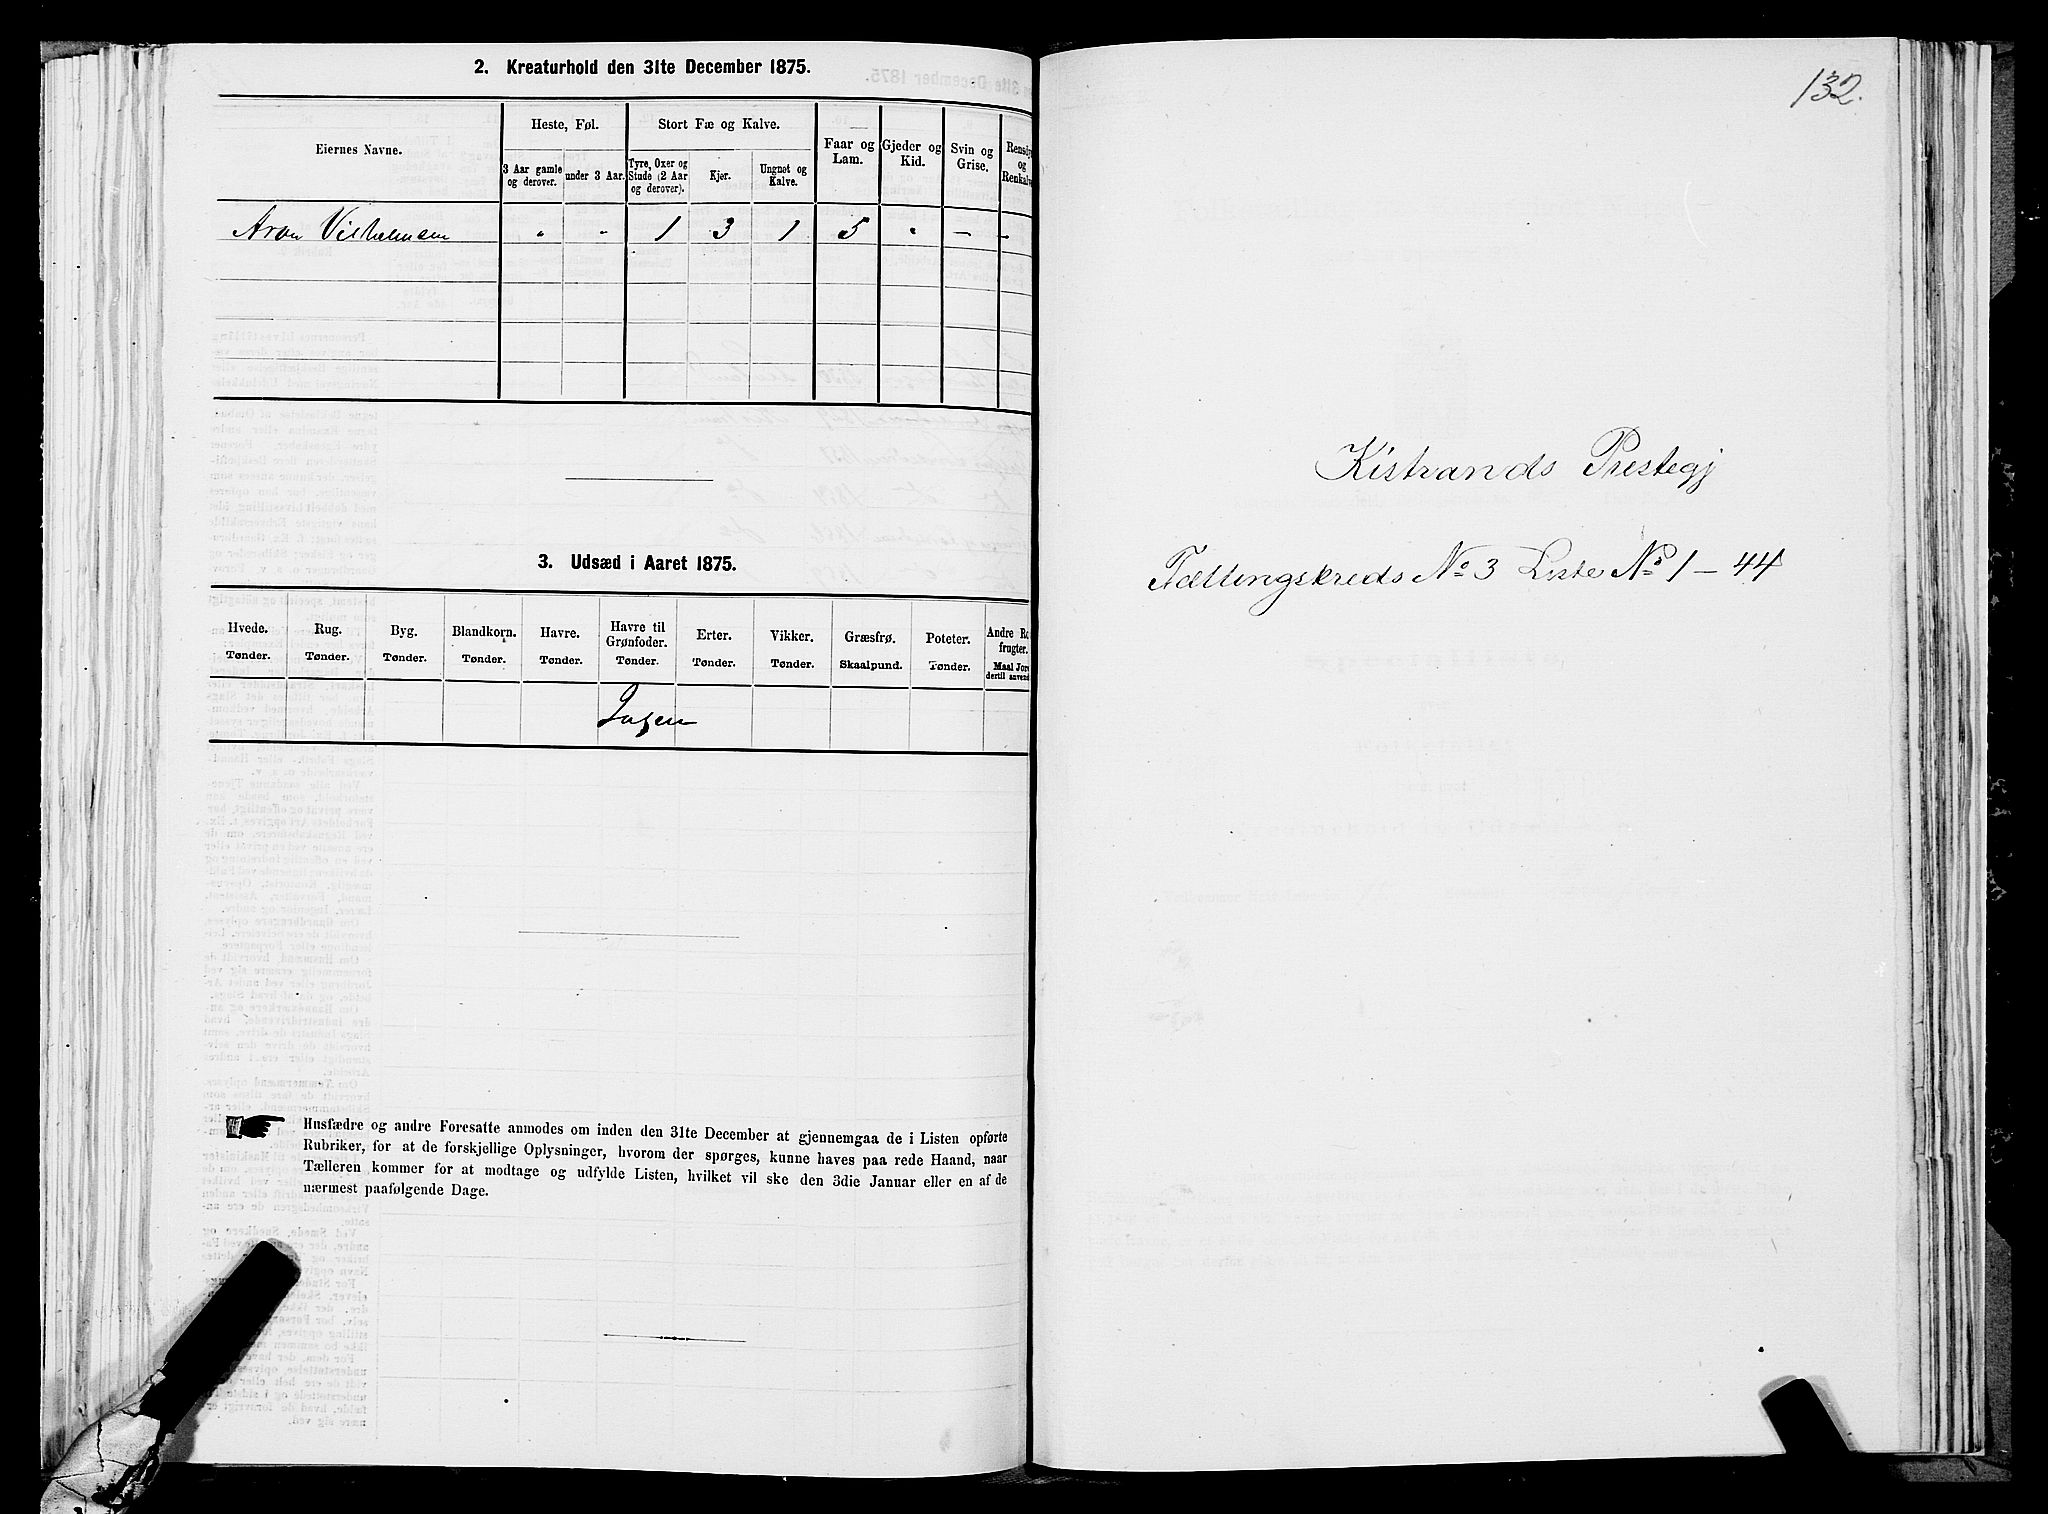 2. Kreaturhold den 31te December 1875.
Eiernes Navne.
Heste, Føl.
Stort Fæ og Kalve.
Faar og Lam.
Gjeder og Kid.
Svin og Grise.
Rensdy
og
Renkalv
3 Aar gamle og derover.
under 3 Aar.
Tyre, Oxer og Stude (2 Aar og derover).
Kjør.
Ungnøt og Kalve.
Aron Vilhelmsen " " 1 3 1 5 " – –
3. Udsæd i Aaret 1875.
Hvede. Rug. Byg. Blandkorn. Havre. Havre til Grønfoder. Erter. Vikker. Græsfrø. Poteter. Andre Ro
frugter.
Tønder. Tønder. Tønder. Tønder. Tønder. Tønder. Tønder. Tønder. Skaalpund. Tønder. Maal Jord
dertil anvend
Ingen
Husfædre og andre Foresatte anmodes om inden den 31te December at gjennemgaa de i Listen opførte
Rubriker, for at de forskjellige Oplysninger, hvorom der spørges, kunne haves paa rede Haand, naar
Tælleren kommer for at modtage og udfylde Listen, hvilket vil ske den 3die Januar eller en af de
nærmest paafølgende Dage.
132.
Kistrands Prestegj
Tællingskreds No 3 Liste No 1 – 44